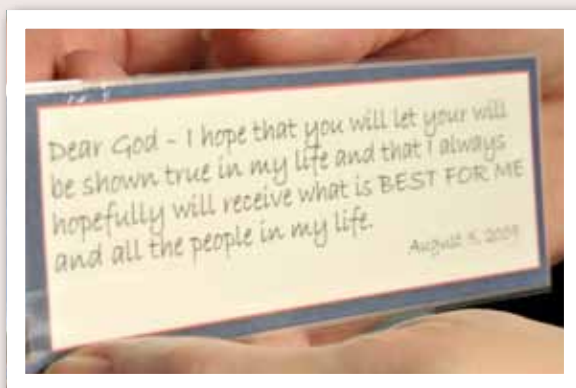 Dear God - I hope that you will let your will
be shown true in my life and that I always
hopefully will receive what is BEST FOR ME
and all the people in my life.
August